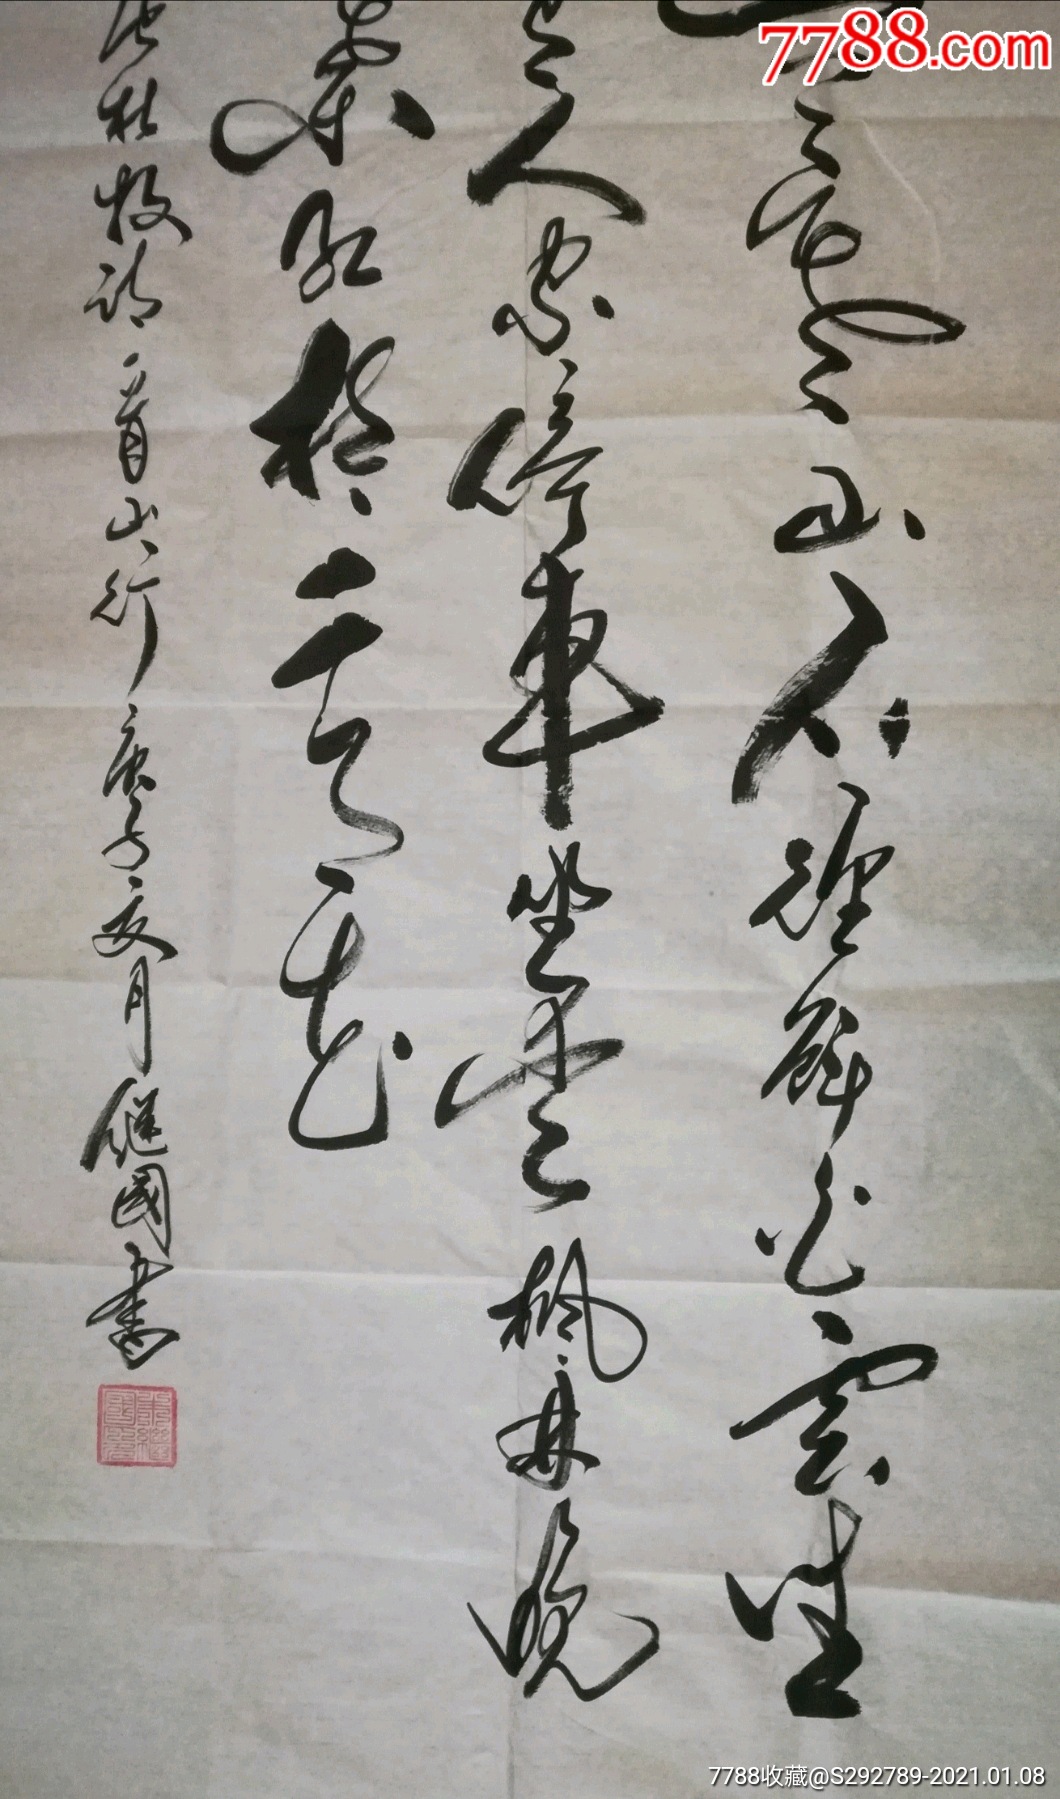 寒山石徑斜白雲生
人家停車坐愛楓林晚
葉紅於二月花
杜牧詩一首山行庚子夏月継國書
7788.com
7788收藏@S292789-2021.01.08